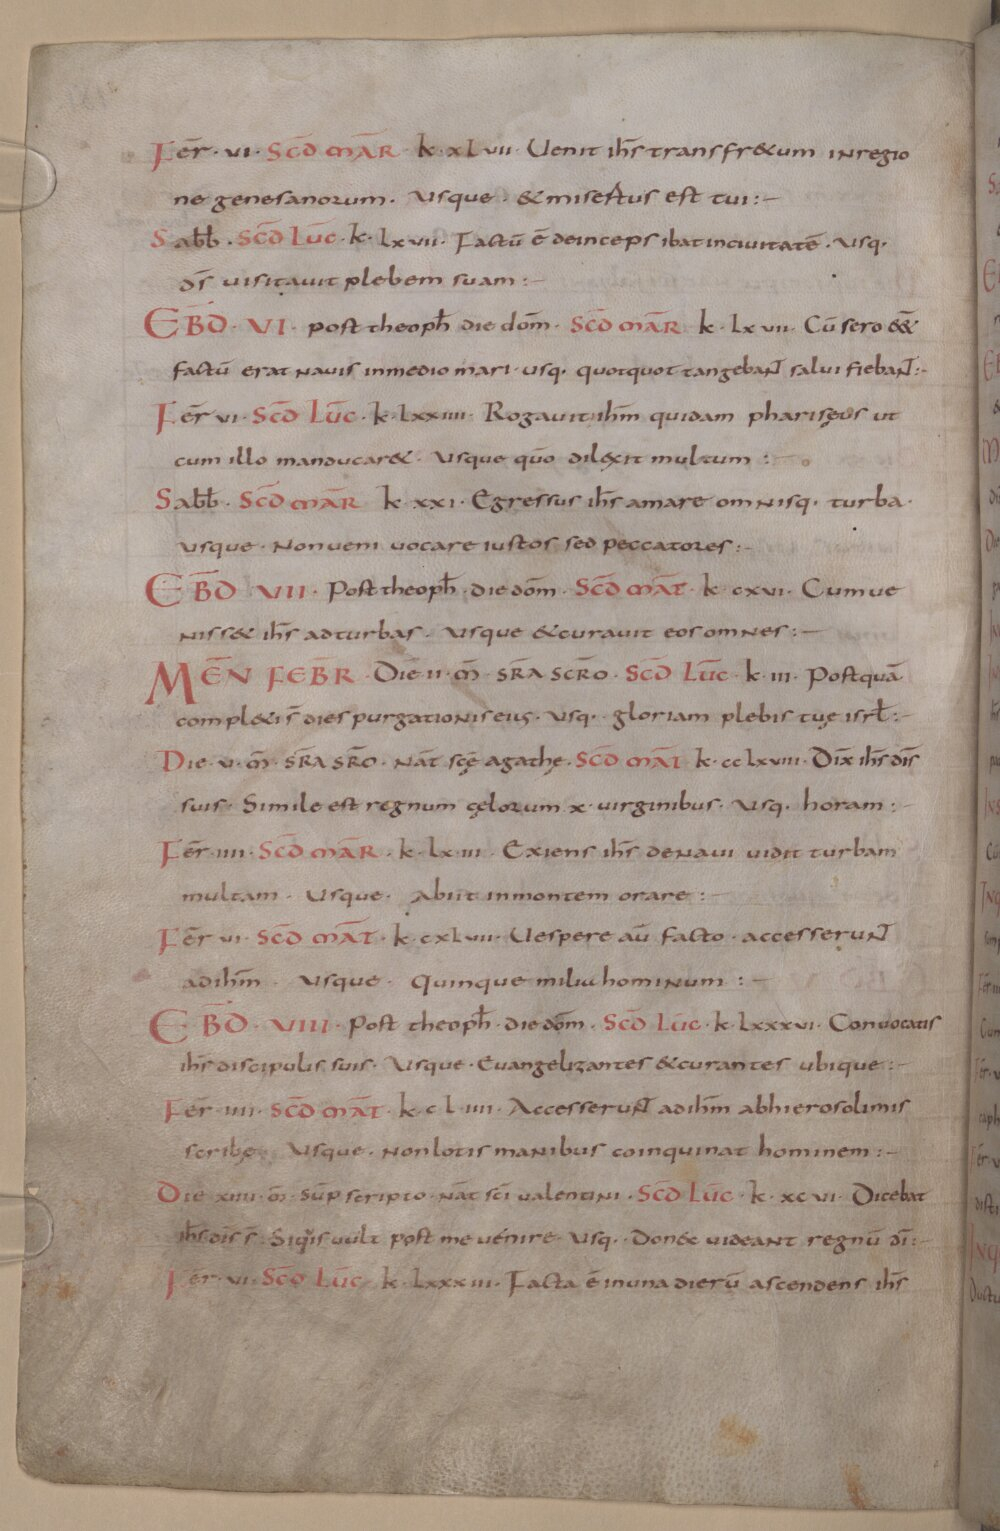 Fer̄ · vi · Scd̄ mār · k · xlvii · Uenit ih̄s trans fr&um in regio
ne genesanorum · Usque · & misertus est tui :-
Sabb̄ · Scd̄ Lūc · k · lxvii · Factū ē deinceps ibat in ciuitatē · Usq ·
ds̄ visitavit plebem suam :-
Ebd̄ · VI · post theoph̄ die dom̄ · Scd̄ mār k · lxvii · Cū sero ēē
factū erat navis in medio mari · usq · quotquot tangebant̄ salvi fiebant̄ :-
Fēr vi · Scd̄ Lūc · k · lxxiiii · Rogauit ih̄m quidam phariseus ut
cum illo manducar& · Usque quō dilexit multum :-
Sabb̄ · Scd̄ mār k xxi · Egressus ih̄s a mare omnisq · turba ·
usque · Non veni uocare iustos sed peccatores :-
Ebd̄ VII · Post theoph̄ · die dom̄ · Scd̄ māt · k cxvi · Cum ue
niss& ih̄s ad turbas · Usque & curauit eos omnes :-
Mēn febr̄ · Die ii · m̄ · sr̄a scr̄o · Scd̄ Lūc · k · iii · Postquā
compl&i s̄ dies purgationis eius · Usq · gloriam plebis tuę isrl̄ :-
Die · v · m̄ · sr̄a sr̄o · nāt scę̄ agathę · Scd̄ māt · k · cclxviii · Dix̄ ih̄s dis̄
suis · Simile est regnum cęlorum x · virginibus · Usq · horam :-
Fēr · iiii · Scd̄ mār · k · lxiii · Exiens ih̄s de navi vidit turbam
multam · Usque · Abiit in montem orare :-
Fēr vi · Scd̄ māt · k · cxlvii · Uespere aū facto · accesserunt̄
ad ih̄m · Usque · Quinque milia hominum :-
Ebd̄ · VIII · Post theoph̄ · die dom̄ · Scd̄ Lūc · k · lxxxvi · Convocatis
ih̄s discipulis suis · Usque · Euangelizantes & curantes ubique :-
Fēr · iiii · Scd̄ māt · k · cliiii · Accesserunt̄ ad ih̄m ab hierosolimis
scribę · Usque · non lotis manibus coinquinat hominem :-
Die xiiii · m̄ · sūp scripto · nāt sc̄i valentini · Scd̄ Lūc · k · xcvi · Dicebat
ih̄s dis̄ s̄ · Siquis vult post me vénire · Usq · Donec videant regnū dī :-
Fēr · vi · Scd̄ Lūc · k · lxxxiii · Facta ē in una dierū ascendens ih̄s